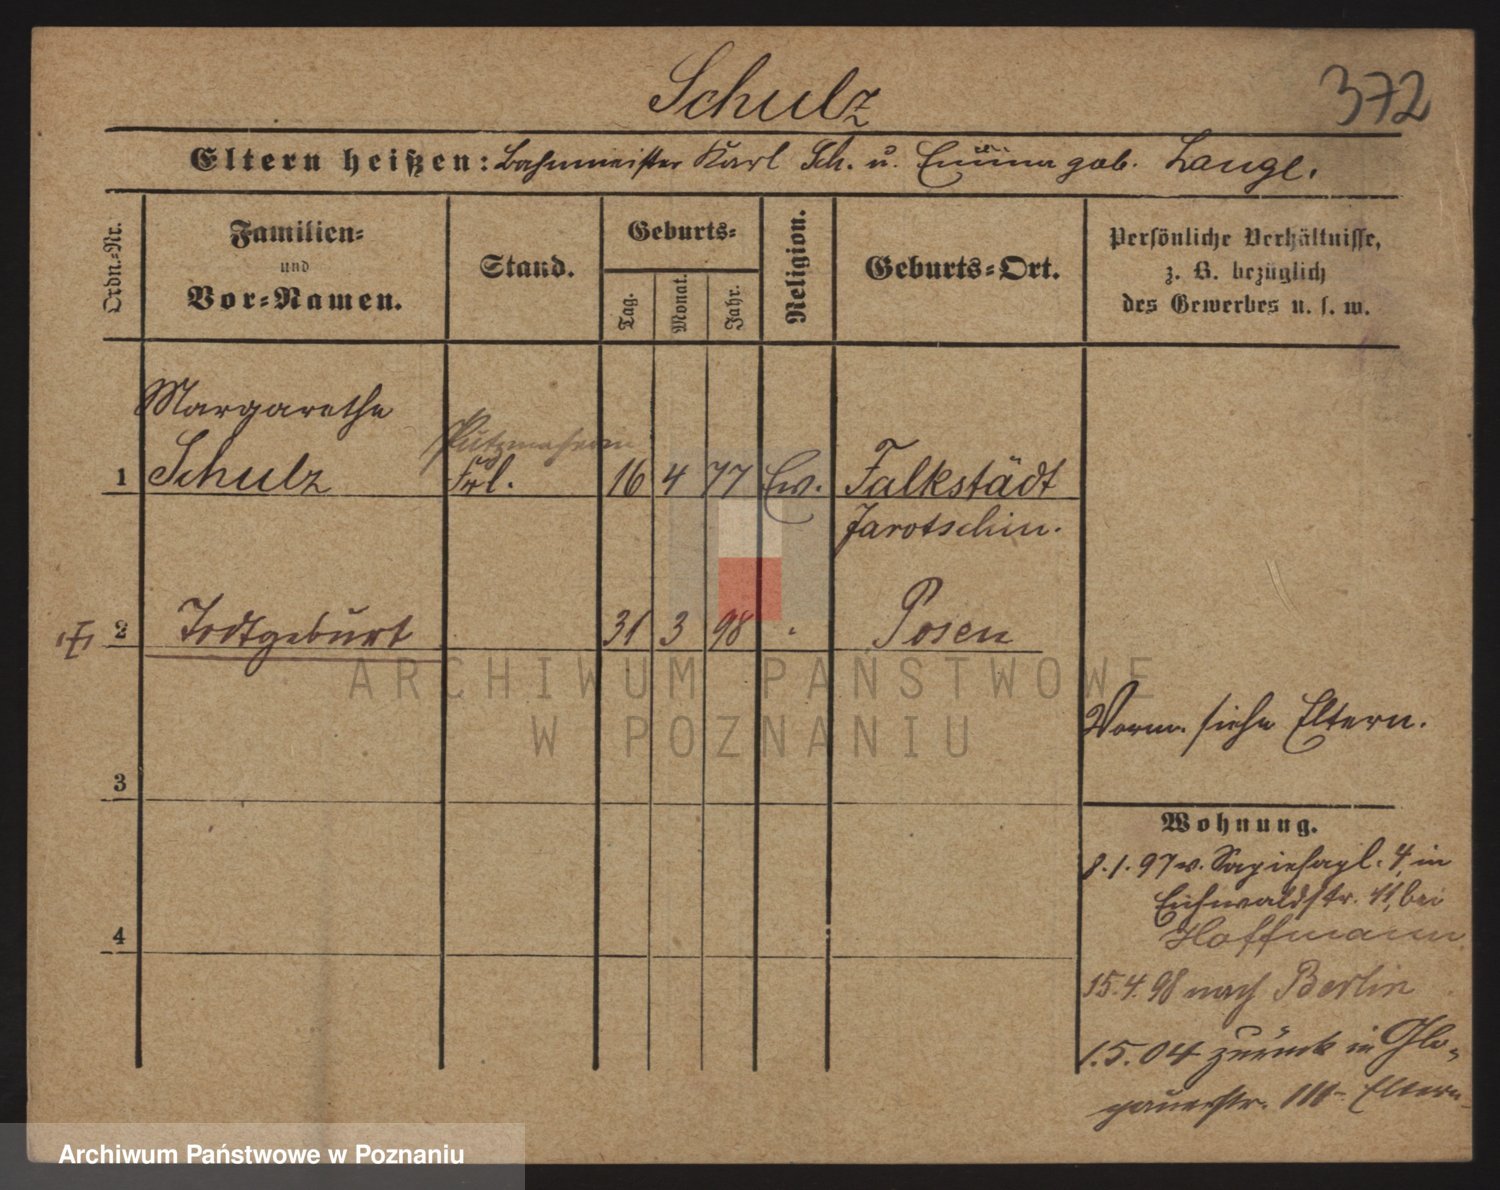 Schulz
372
Eltern heißen: Bahnmeister Karl Sch. u. Emma geb. Lange.
Ordn.-Nr.
Familien-
und
Vor-Namen.
Stand.
Geburts-
Tag.
Monat.
Jahr.
Religion.
Geburts-Ort.
Persönliche Verhältnisse,
z. B. bezüglich
des Gewerbes u. s. w.
Margarethe
Putzmacherin
1 Schulz Frl. 16 4 77 Ev. Falkstädt
Jarotschin.
2 Todtgeburt 31 3 98 Posen
ARCHIWUM PAŃSTWOWE
W POZNANIU
Vorm. siehe Eltern.
3
Wohnung.
8.1.97 v. Sapiehapl. 4, in
Eichwaldstr. 11, bei
4
Hoffmann
15.4.98 nach Berlin
1.5.04 zurück in Glo-
gauerstr. 111 Eltern
Archiwum Państwowe w Poznaniu